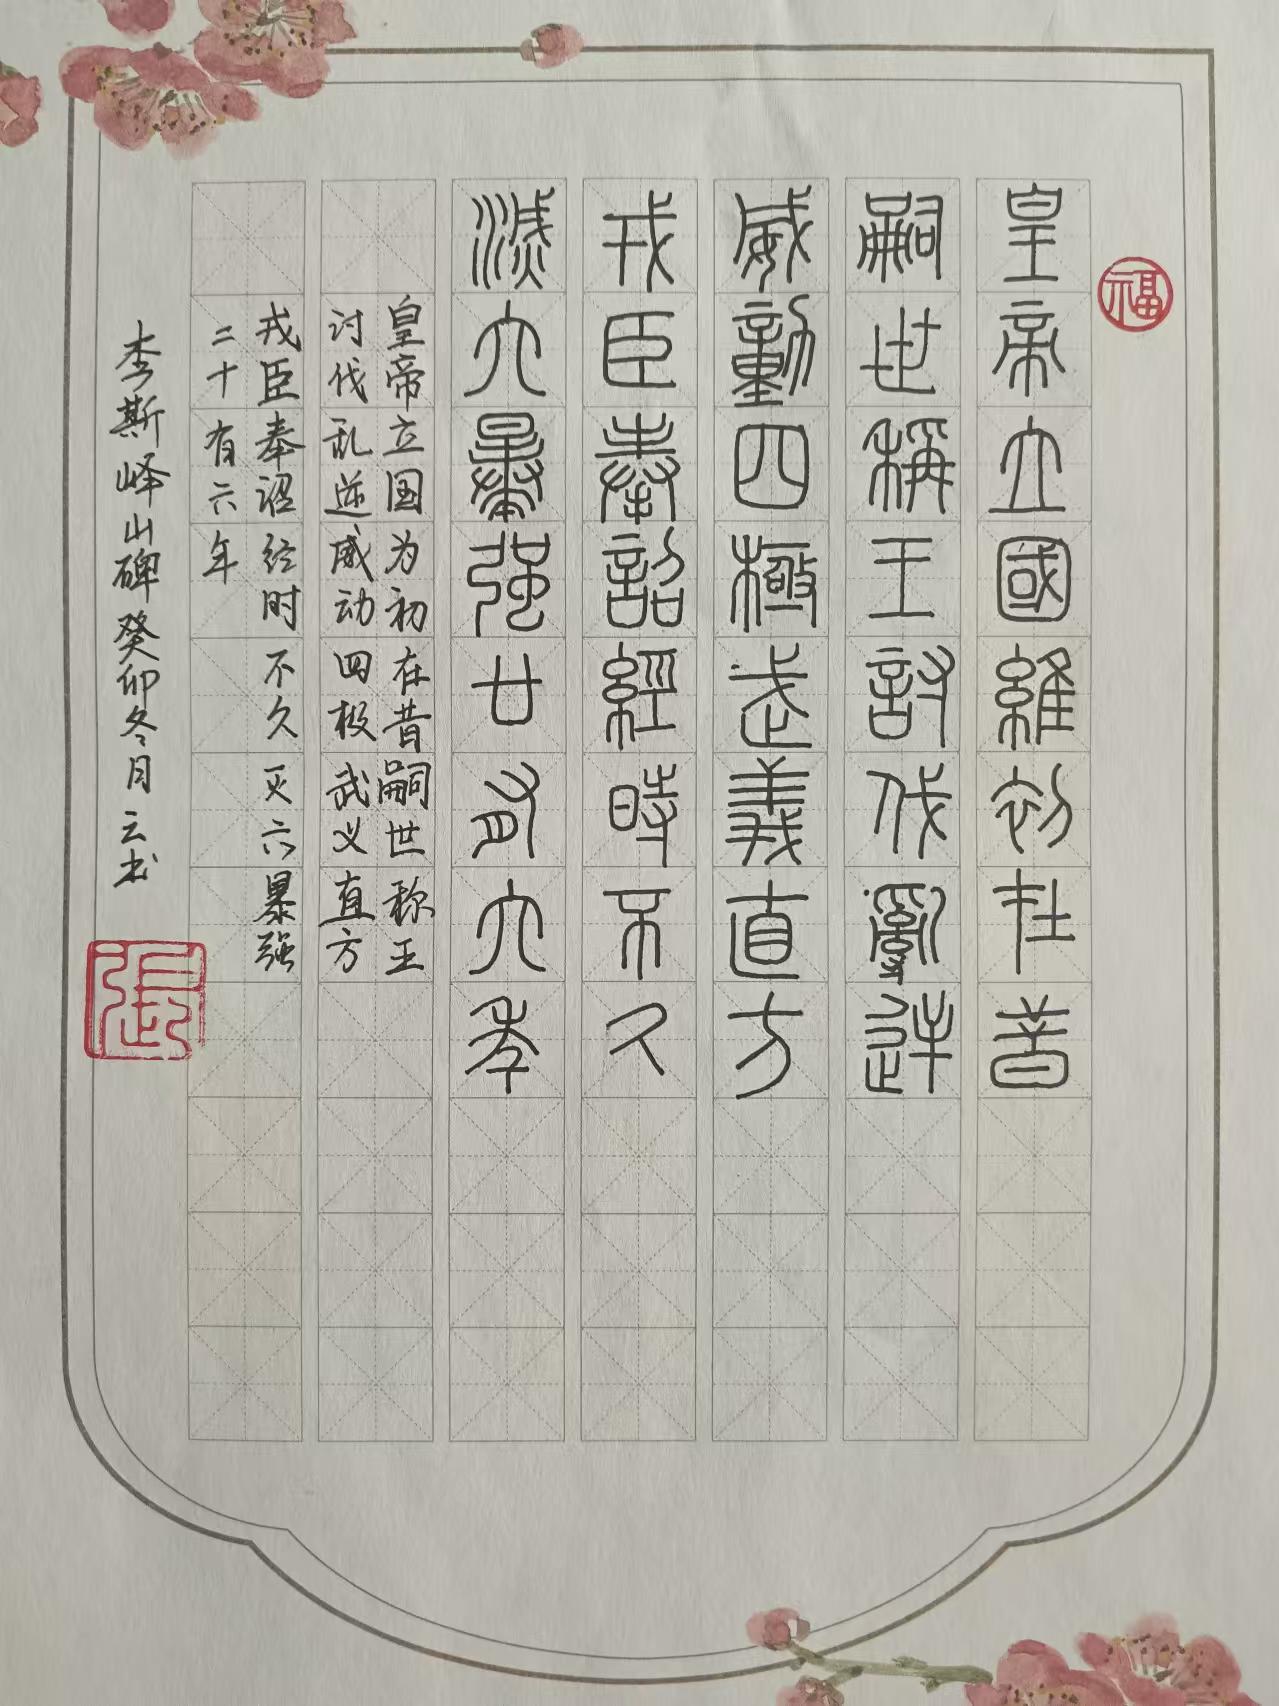 福
皇帝立國維初在昔
嗣世稱王討伐亂逆
威動四極武義直方
戎臣奉詔經時不久
滅六暴强廿有六年
皇帝立国为初在昔嗣世称王
讨伐乱逆威动四极武义直方
戎臣奉诏经时不久灭六暴强
二十有六年
李斯峄山碑癸卯冬月云书
張